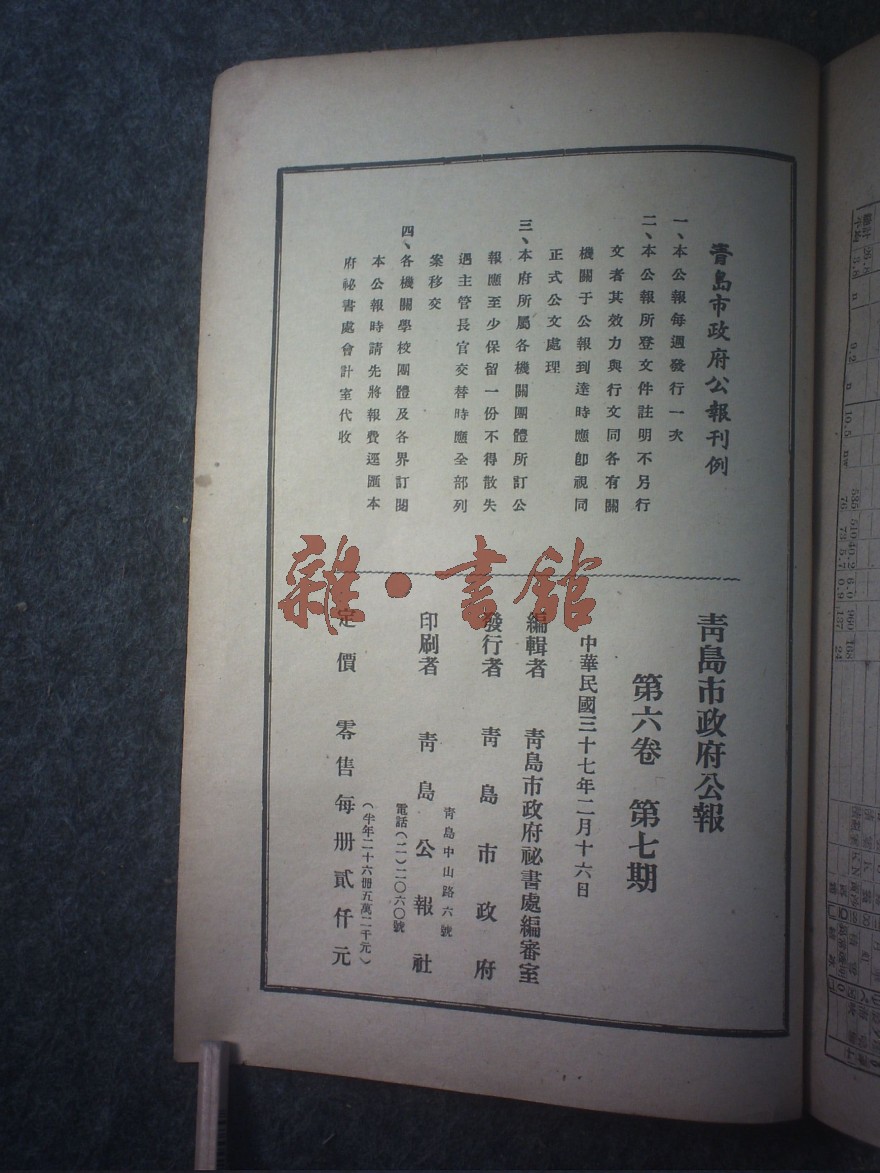 青島市政府公報刊例
一、本公報每週發行一次
二、本公報所登文件註明不另行
文者其效力與行文同各有關
機關于公報到達時應卽視同
正式公文處理
三、本府所屬各機關團體所訂公
報應至少保留一份不得散失
遇主管長官交替時應全部列
案移交
四、各機關學校團體及各界訂閱
本公報時請先將報費逕匯本
府祕書處會計室代收
青島市政府公報
第六卷 第七期
中華民國三十七年二月十六日
編輯者 青島市政府祕書處編審室
發行者 青島市政府
青島中山路六號
印刷者 青島公報社
電話(二)二〇六〇號
定價 零售每册貳仟元
(半年二十六册五萬二千元)
雜·書館